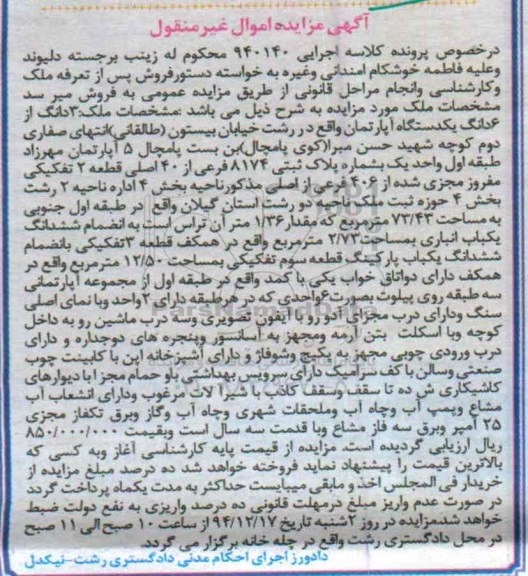 آگهی مزایده اموال غیرمنقول
درخصوص پرونده کلاسه اجرایی ۹۴۰۱۴۰ محکوم له زینب برجسته دلیوند
وعلیه فاطمه خوشکام امندانی وغیره به خواسته دستورفروش پس از تعرفه ملک
وکارشناسی وانجام مراحل قانونی از طریق مزایده عمومی به فروش میر سد
مشخصات ملک مورد مزایده به شرح ذیل می باشد :مشخصات ملک:۳دانگ از
۶دانگ یکدستگاه آپارتمان واقع در رشت خیابان بیستون (طالقانی)انتهای صفاری
دوم کوچه شهید حسن مبرا(کوی پامچال)بن بست پامچال ۵ آپارتمان مهرزاد
طبقه اول واحد یک بشماره پلاک ثبتی ۸۱۷۴ فرعی از ۴۰ اصلی قطعه ۲ تفکیکی
مفروز مجزی شده از ۴۰۶ فرعی از اصلی مذکورناحیه بخش ۴ اداره ناحیه ۲ رشت
بخش ۴ حوزه ثبت ملک ناحیه دو رشت استان گیلان واقع در طبقه اول جنوبی
به مساحت ۷۳/۴۳ مترمربع که مقدار ۱/۳۶ متر آن تراس است به انضمام ششدانگ
یکباب انباری بمساحت ۲/۷۳ مترمربع واقع در همکف قطعه ۳تفکیکی بانضمام
ششدانگ یکباب پارکینگ قطعه سوم تفکیکی بمساحت ۱۲/۵۰ مترمربع واقع در
همکف دارای دواتاق خواب یکی با کمد واقع در طبقه اول از مجموعه آپارتمانی
سه طبقه روی پیلوت بصورت۶واحدی که در هرطبقه دارای ۲واحد وبا نمای اصلی
سنگ ودارای درب مجزای آدو رو با آیفون تصویری وسه درب ماشین رو به داخل
کوچه وبا اسکلت بتن آرمه ومجهز به آسانسور وپنجره های دوجداره و دارای
درب ورودی چوبی مجهز به پکیج وشوفاژ و دارای آشپزخانه اپن با کابینت چوب
صنعتی وسالن با کف سرامیک دارای سرویس بهداشتی باو حمام مجزا با دیوارهای
کاشیکاری ش ده تا سقف وسقف کاذب با شیرآ لات مرغوب ودارای انشعاب آب
مشاع وپمپ آب وچاه آب وملحقات شهری وچاه آب وگاز وبرق تکفاز مجزی
۲۵ آمپر وبرق سه فاز مشاع وبا قدمت سه سال است وبقیمت ۸۵۰/۰۰۰/۰۰۰
ریال ارزیابی گردیده است. مزایده از قیمت پایه کارشناسی آغاز وبه کسی که
بالاترین قیمت را پیشنهاد نماید فروخته خواهد شد ده درصد مبلغ مزایده از
خریدار فی المجلس اخذ و مابقی میبایست حداکثر به مدت یکماه پرداخت گردد
در صورت عدم واریز مبلغ درمهلت قانونی ده درصد واریزی به نفع دولت ضبط
خواهد شد.مزایده در روز ۲شنبه تاریخ ۹۴/۱۲/۱۷ از ساعت ۱۰ صبح الی ۱۱ صبح
در محل دادگستری رشت واقع در چله خانه برگزار می گردد.
دادورز اجرای احکام مدنی دادگستری رشت-نیکدل